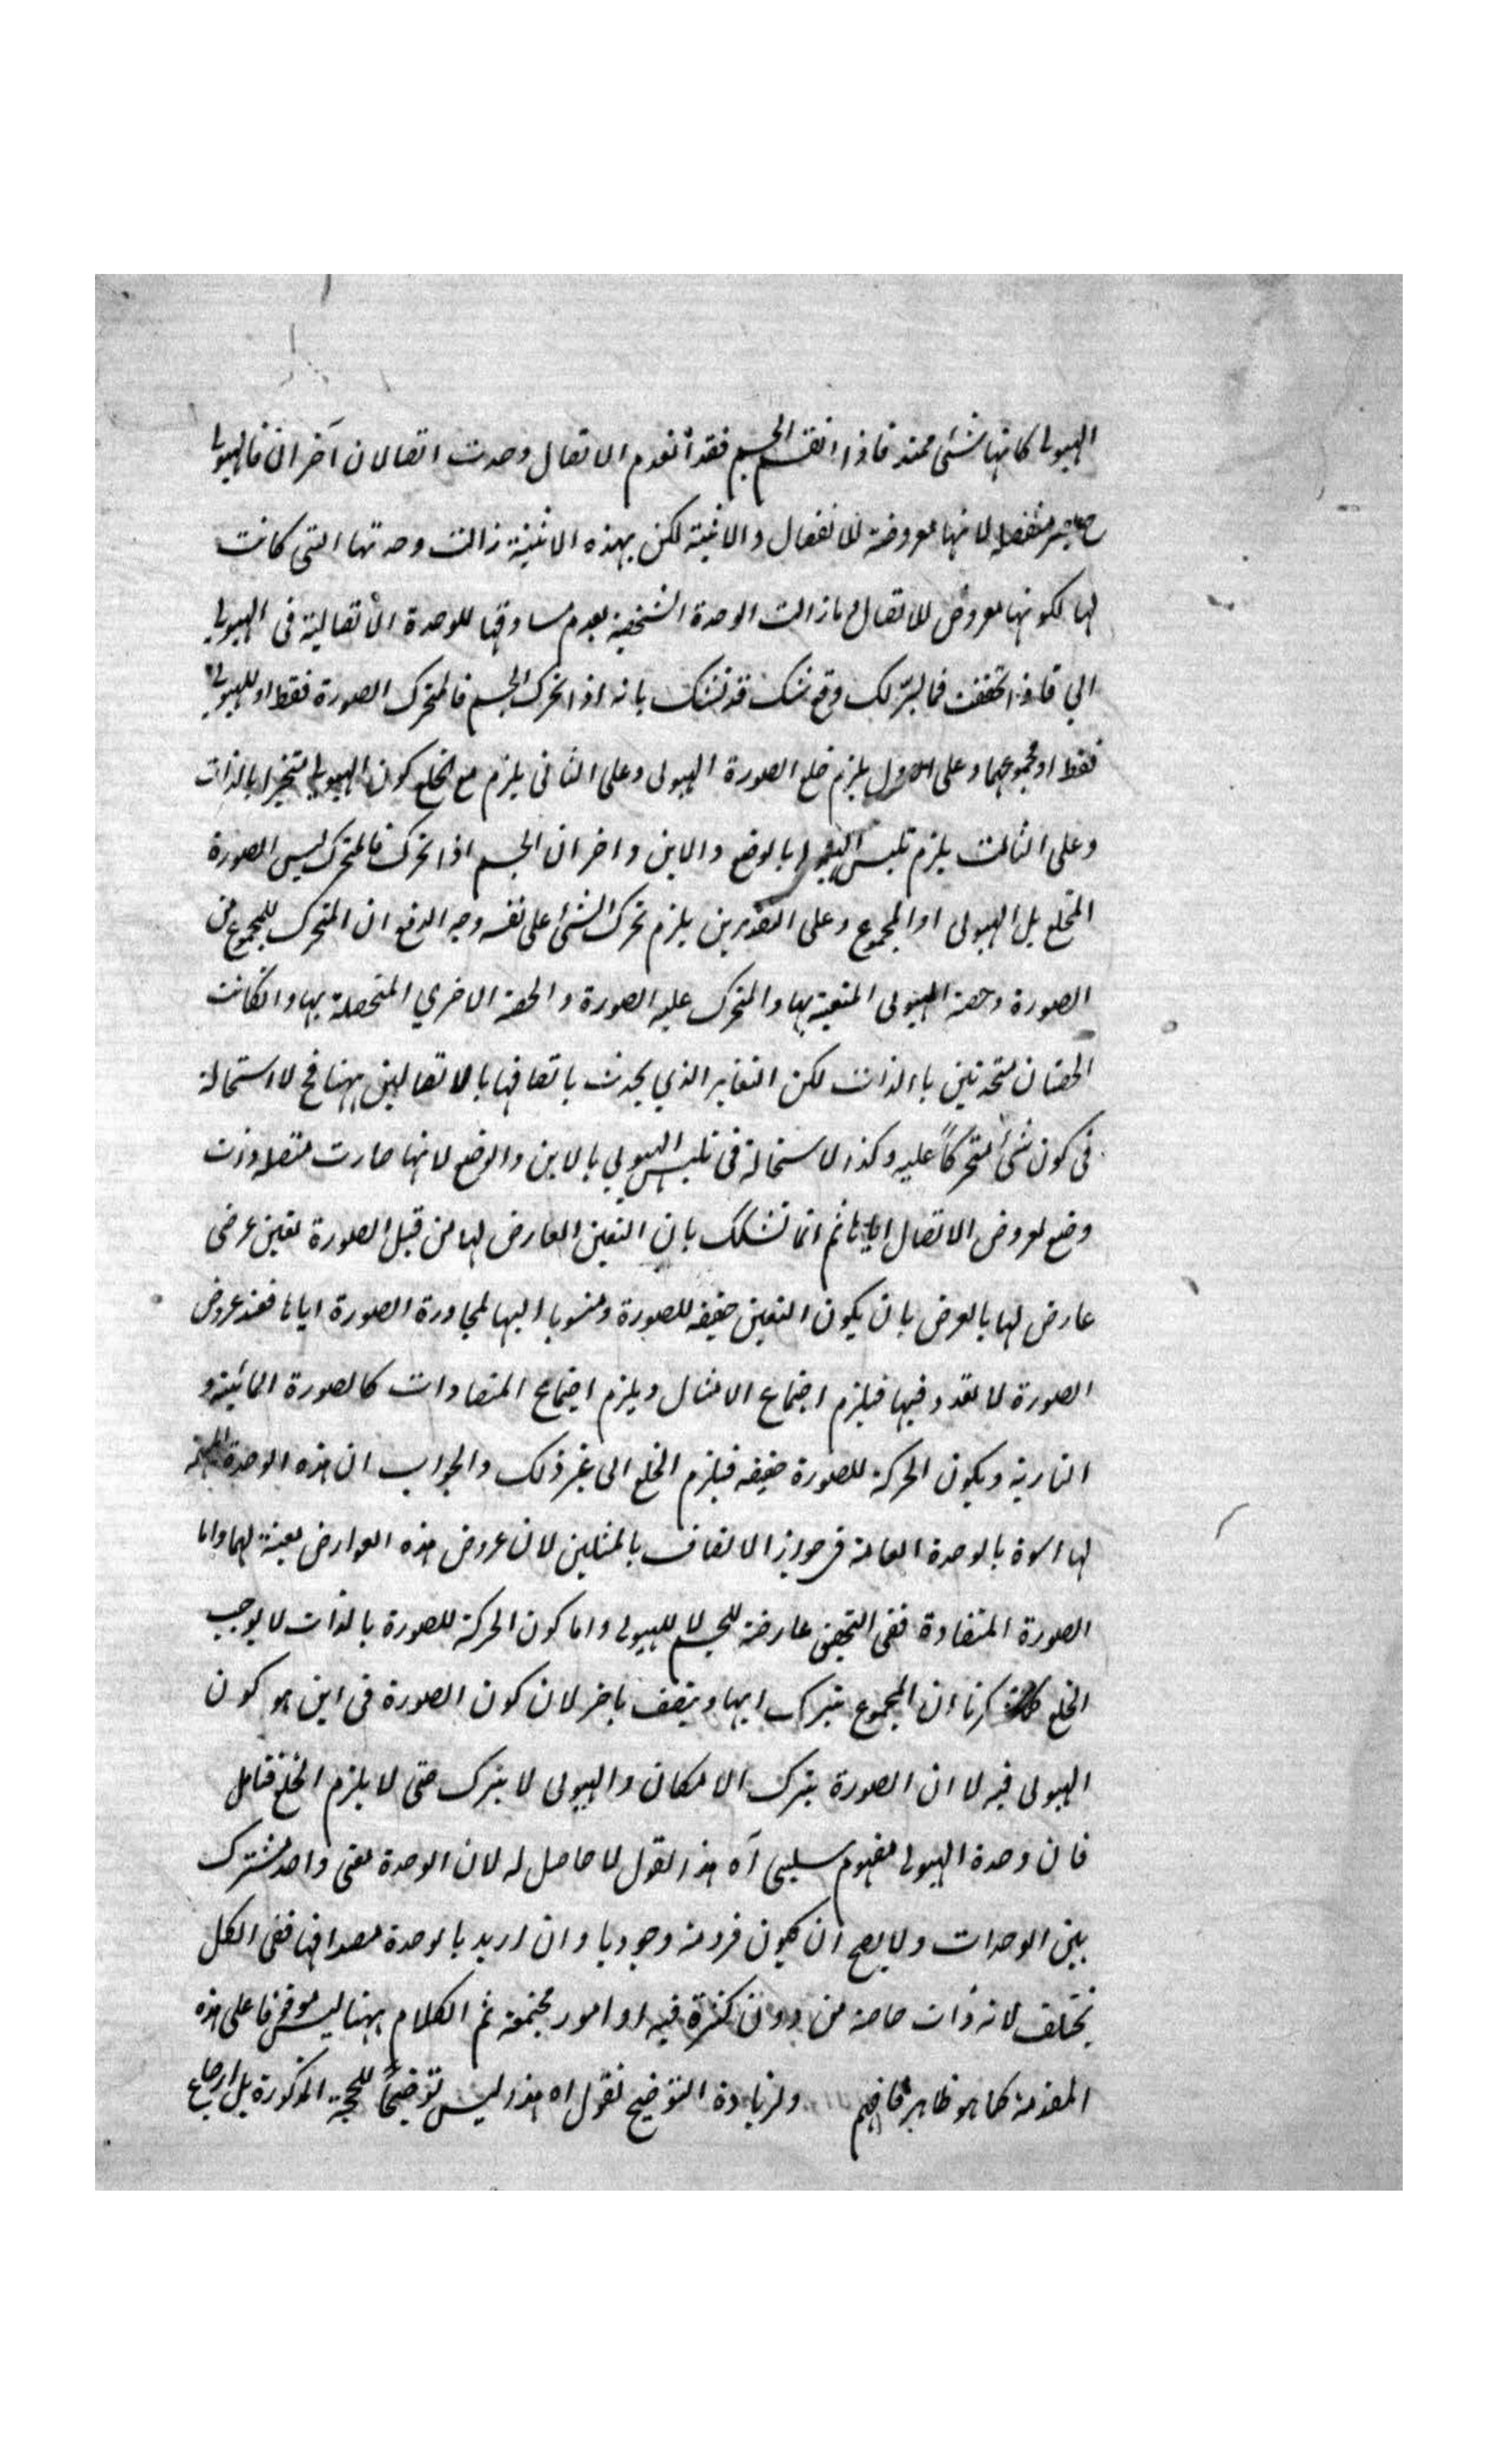 الهيولى كانها شئ ممتد فاذا انقسم الجسم فقد انعدم الاتصال وحدث اتصالان آخران فالهيولى
منفصلة لانها معروضة للانفصال والاثنينية لكن بهذه الاثنينية زالت وحدتها التى كانت
لها لكونها معروض للاتصال ما زالت الوحدة الشخصية لعدم مساوقتها للوحدة الاتصالية فى الهيولى
فاذا تحققت فما لك وقع شك قد تشك بانه اذا تحرك الجسم فالمتحرك الصورة فقط او الهيولى
فقط او مجموعهما وعلى الاول يلزم خلع الصورة الهيولى وعلى الثانى يلزم مع الخلع كون الهيولى متحيزا بالذات
وعلى الثالث يلزم تلبس الهيولى بالوضع والاين واخر ان الجسم اذا تحرك فالمتحرك ليس الصورة
المتخلع بل الهيولى او المجموع وعلى التقديرين يلزم تحرك الشئ على نفسه وجه الدفع ان المتحرك المجموع من
الصورة وحصة الهيولى المتعينة بها والمتحرك عليه الصورة والحصة الاخرى المتحصلة بها وان كانت
الحصتان متحدتين بالذات لكن التغاير الذي يحدث باتصافها بالاتصالين ههنا فح لا استحالة
فى كون شئ متحركاً عليه وكذا لا استحالة فى تلبس الهيولى بالاين والوضع لانها صارت متصلا وذات
وضع لعروض الاتصال اياها ثم انما تشكك بان التعين العارض لها من قبل الصورة تعين عرضى
عارض لها بالعرض بان يكون التعين حقيقة للصورة ومنسوبا اليها لمجاورة الصورة اياها فعند عروض
الصورة لا تعدد فيها فيلزم اجتماع الامثال ويلزم اجتماع المتضادات كالصورة المائية و
النارية ويكون الحركة للصورة حقيقة فيلزم الخلع الى غير ذلك والجواب ان هذه الوحدة
لها اسوة بالوحدة العامة فى جواز الاتصاف بالمثلين لان عروض هذه العوارض لها واما
الصورة المتضادة ففى التحقيق عارضة للجسم لا للهيولى واما كون الحركة للصورة بالذات لا يوجب
الخلع ان المجموع يترك اينا ويتصف باخر لان كون الصورة فى اين هو كون
الهيولى فيه لا ان الصورة يترك الامكان والهيولى لا يترك حتى لا يلزم الخلع فتامل
فان وحدة الهيولى مفهوم سلبى آه هذا القول لا حاصل له لان الوحدة معنى واحد مشترك
بين الوحدات ولا يصح ان يكون فرد منه وجوديا وان اريد بالوحدة مصداقها ففى الكل
يختلف لانه ذات خاصة من دون كثرة فيه او امور مجتمعة ثم الكلام ههنا ليس موقوفا على هذه
المقدمة كما هو ظاهر فافهم ولزيادة التوضيح نقول اه هذا ليس توضيحاً للحجة المذكورة بل ارجاع